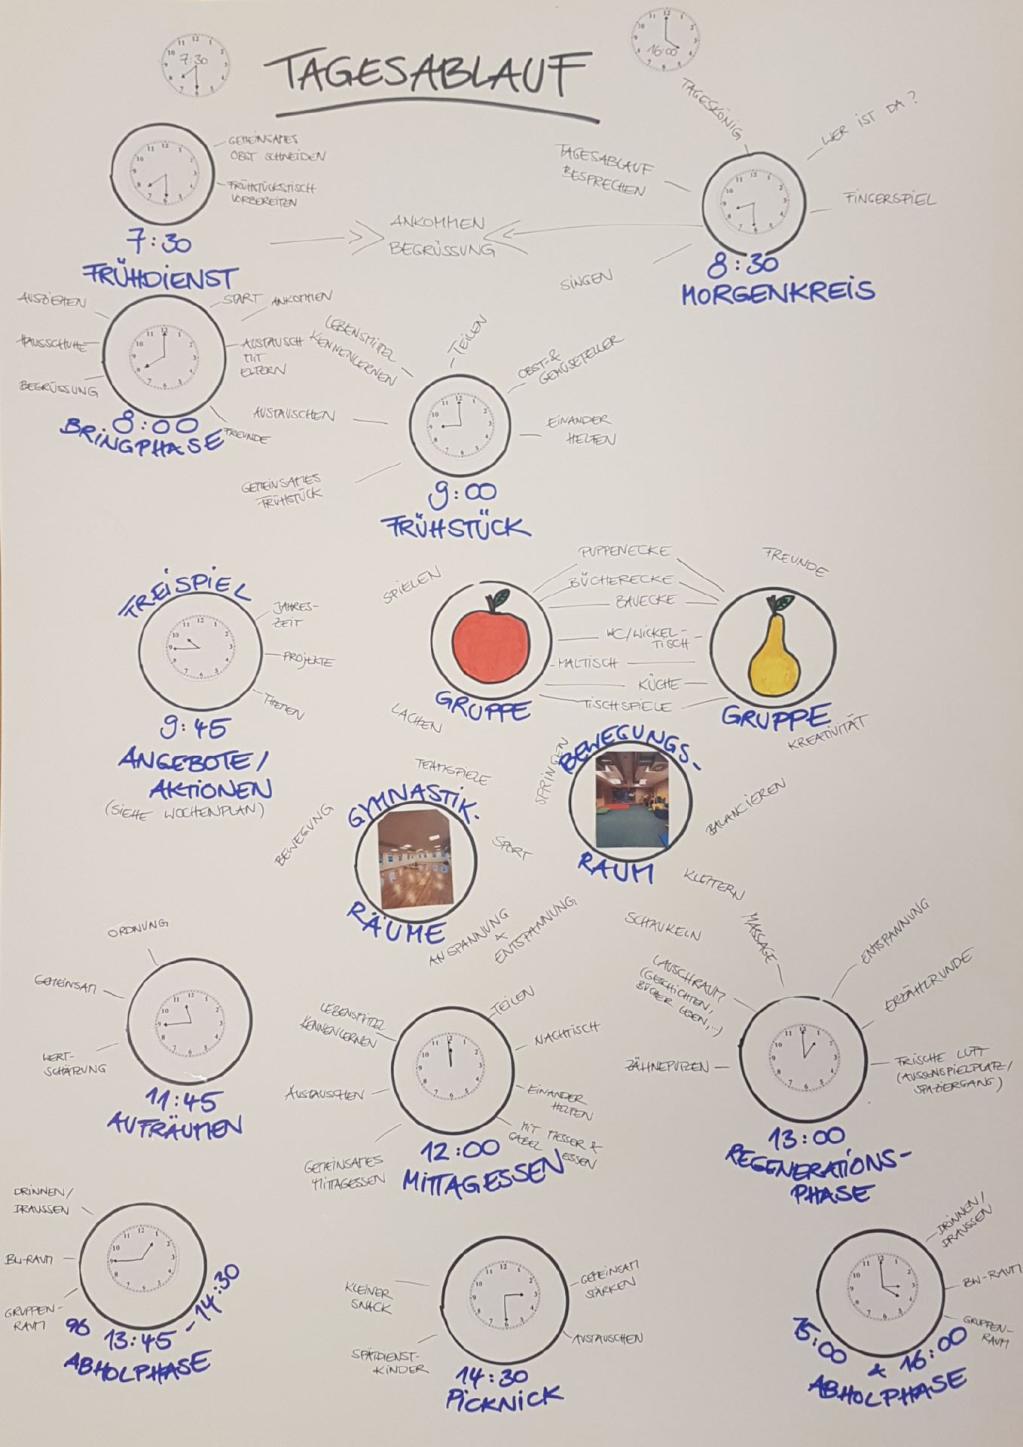 7:30
TAGESABLAUF
16:00
GEMEINSAMES
OBST SCHNEIDEN
FRÜHSTÜCKSTISCH
VORBEREITEN
7:30
FRÜHDIENST
ANKOMMEN
BEGRÜSSUNG
TAGESKÖNIG
WER IST DA?
TAGESABLAUF
BESPRECHEN
FINGERSPIEL
SINGEN
8:30
MORGENKREIS
AUSZIEHEN
HAUSSCHUHE
BEGRÜSSUNG
START ANKOMMEN
AUSTAUSCH
MIT
ELTERN
FREUNDE
8:00
BRINGPHASE
LEBENSMITTEL
KENNENLERNEN
TEILEN
OBST- &
GEMÜSETELLER
AUSTAUSCHEN
EINANDER
HELFEN
GEMEINSAMES
FRÜHSTÜCK
9:00
FRÜHSTÜCK
FREISPIEL
JAHRES-
ZEIT
PROJEKTE
THEMEN
9:45
ANGEBOTE/
AKTIONEN
(SIEHE WOCHENPLAN)
SPIELEN
PUPPENECKE
BÜCHERECKE
BAUECKE
WC/WICKEL-
TISCH
MALTISCH
KÜCHE
TISCHSPIELE
FREUNDE
GRUPPE
GRUPPE
LACHEN
KREATIVITÄT
TEAMSPIELE
BEWEGUNG
GYMNASTIK-
RÄUME
SPORT
ANSPANNUNG
&
ENTSPANNUNG
SPRINGEN
BEWEGUNGS-
RAUM
BALANCIEREN
KLETTERN
SCHAUKELN
ORDNUNG
GEMEINSAM
WERT-
SCHÄTZUNG
11:45
AUFRÄUMEN
LEBENSMITTEL
KENNENLERNEN
TEILEN
NACHTISCH
AUSTAUSCHEN
EINANDER
HELFEN
MIT MESSER &
GABEL ESSEN
GEMEINSAMES
MITTAGESSEN
12:00
MITTAGESSEN
MASSAGE
ENTSPANNUNG
LAUSCHRAUM
(GESCHICHTEN,
BÜCHER LESEN,..)
ERZÄHLRUNDE
ZÄHNEPUTZEN
FRISCHE LUFT
(AUSSENSPIELPLATZ/
SPAZIERGANG)
13:00
REGENERATIONS-
PHASE
DRINNEN/
DRAUSSEN
BW-RAUM
GRUPPEN-
RAUM
ab 13:45 - 14:30
ABHOLPHASE
KLEINER
SNACK
GEMEINSAM
STÄRKEN
SPÄTDIENST-
KINDER
AUSTAUSCHEN
14:30
PICKNICK
DRINNEN/
DRAUSSEN
BW-RAUM
GRUPPEN-
RAUM
15:00 & 16:00
ABHOLPHASE